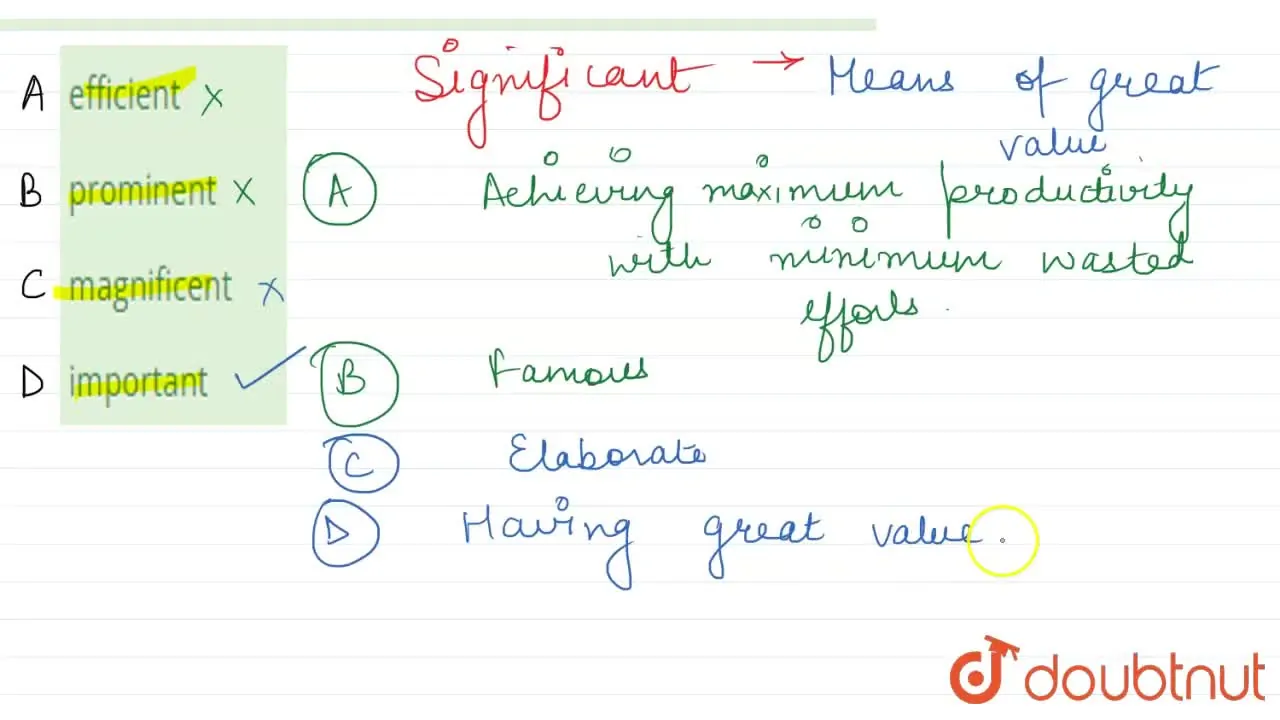 A efficient x
Significant → Means of great
value
B prominent x
A Achieving maximum productivity
with minimum wasted
efforts.
C magnificent x
D important ✓
B Famous
C Elaborate
D Having great value.
doubtnut